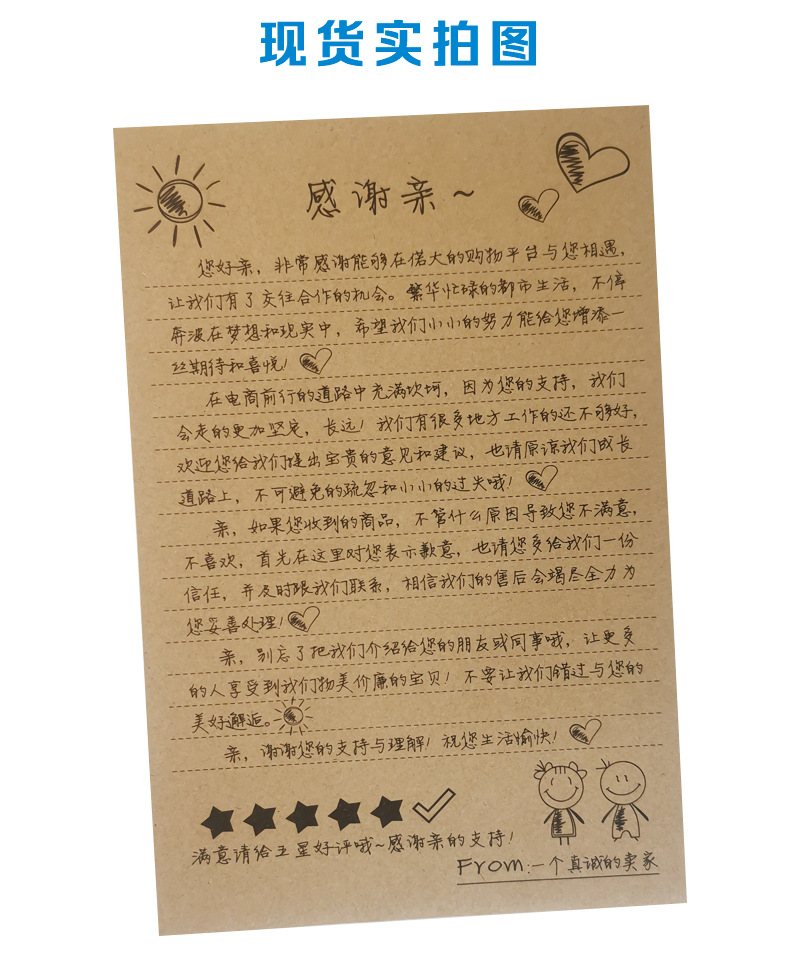 现货实拍图
感谢亲~
您好亲，非常感谢能够在偌大的购物平台与您相遇，
让我们有了交往合作的机会。繁华忙碌的都市生活，不停
奔波在梦想和现实中，希望我们小小的努力能给您增添一
丝期待和喜悦！
在电商前行的道路中充满坎坷，因为您的支持，我们
会走的更加坚定，长远！我们有很多地方工作的还不够好，
欢迎您给我们提出宝贵的意见和建议，也请原谅我们成长
道路上，不可避免的疏忽和小小的过失哦！
亲，如果您收到的商品，不管什么原因导致您不满意，
不喜欢，首先在这里对您表示歉意，也请您多给我们一份
信任，并及时跟我们联系，相信我们的售后会竭尽全力为
您妥善处理！
亲，别忘了把我们介绍给您的朋友或同事哦，让更多
的人享受到我们物美价廉的宝贝！不要让我们错过与您的
美好邂逅。
亲，谢谢您的支持与理解！祝您生活愉快！
满意请给五星好评哦~感谢亲的支持！
From:一个真诚的卖家